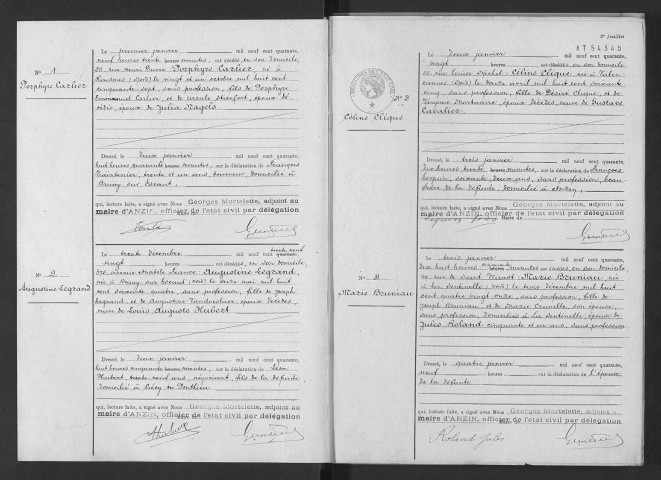 N° 1
Porphyre Carlier
Le premier janvier mil neuf cent quarante,
neuf heures trente minutes, est décédé, en son domicile
rue Henri Durre Porphyre Carlier né à
le vingt et un octobre mil huit cent
cinquante sept, sans profession, fils de Porphyre
Emmanuel Carlier et de époux de
époux de Julia Nagels
Dressé, le deux janvier mil neuf cent quarante,
huit heures quarante heures minutes, sur la déclaration de François
trente et un ans, domicilié à
Bruay sur Escaut
qui, lecture faite, a signé avec Nous Georges Mortelette, adjoint au
maire d'ANZIN, officier de l'état civil par délégation
N° 2
Augustine Legrand
Le trente décembre mil neuf cent trente neuf
vingt heures est décédée, en son domicile
avenue Anatole France, Augustine Legrand,
née à Bruay sur Escaut (Nord) le seize mai mil huit
cent soixante quatre, sans profession, fille de Joseph
Legrand, et de Augustine époux décédés,
veuve de Louis Auguste Hubert
Dressé, le deux janvier mil neuf cent quarante,
huit heures cinquante heures minutes, sur la déclaration de Léon
Hubert, trente neuf ans, fils de la défunte,
domicilié à Crécy en Ponthieu
qui, lecture faite, a signé avec Nous Georges Mortelette, adjoint au
maire d'ANZIN, officier de l'état civil par délégation
1er feuillet
AT54345
N° 3
Céline Clique
Le deux janvier mil neuf cent quarante,
vingt heures est décédée, en son domicile
rue Louise Michel Céline Clique, née à Valen-
ciennes (Nord) le douze avril mil huit cent soixante
cinq, sans profession, fille de Désiré Clique, et de
époux décédés, veuve de Gustave
Cavalier
Dressé, le trois janvier mil neuf cent quarante,
dix heures trente heures minutes, sur la déclaration de François
soixante deux ans, sans profession, beau
frère de la défunte, domicilié à Anzin
qui, lecture faite, a signé avec Nous Georges Mortelette, adjoint au
maire d'ANZIN, officier de l'état civil par délégation
N° 4
Marie Bruniau
Le trois janvier mil neuf cent quarante,
dix huit heures minutes est décédée, en son domicile
rue de Saint Waast Marie Bruniau née à
La Sentinelle (Nord) le trois décembre mil huit
cent quatre vingt onze, sans profession, fille de
Joseph Bruniau, et de Marie son épouse,
sans profession, domiciliés à La Sentinelle, épouse de
Jules Roland cinquante et un ans, sans profession
Dressé, le quatre janvier mil neuf cent quarante,
neuf heures sur la déclaration de l'époux
de la défunte
qui, lecture faite, a signé avec Nous Georges Mortelette, adjoint au
maire d'ANZIN, officier de l'état civil par délégation
Roland Jules